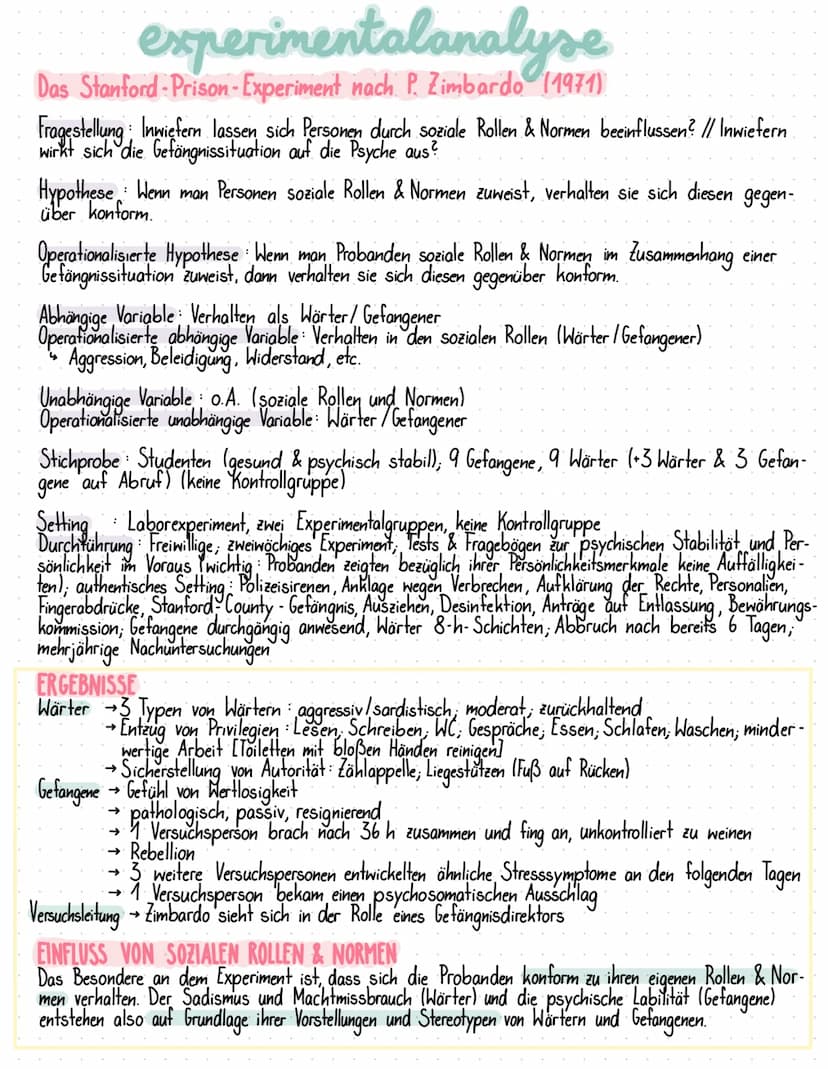 experimentalanalyse
Das Stanford-Prison-Experiment nach P. Zimbardo (1971)
Fragestellung: Inwiefern lassen sich Personen durch soziale Rollen & Normen beeinflussen? // Inwiefern
wirkt sich die Gefängnissituation auf die Psyche aus?
Hypothese: Wenn man Personen soziale Rollen & Normen zuweist, verhalten sie sich diesen gegen-
über konform.
Operationalisierte Hypothese: Wenn man Probanden soziale Rollen & Normen im Zusammenhang einer
Gefängnissituation zuweist, dann verhalten sie sich diesen gegenüber konform.
Abhängige Variable: Verhalten als Wärter/Gefangener
Operationalisierte abhängige Variable: Verhalten in den sozialen Rollen (Wärter/Gefangener)
↳ Aggression, Beleidigung, Widerstand, etc.
Unabhängige Variable: o.A. (soziale Rollen und Normen)
Operationalisierte unabhängige Variable: Wärter/Gefangener
Stichprobe: Studenten (gesund & psychisch stabil); 9 Gefangene, 9 Wärter (+3 Wärter & 3 Gefan-
gene auf Abruf) (keine Kontrollgruppe)
Setting: Laborexperiment, zwei Experimentalgruppen, keine Kontrollgruppe
Durchführung: Freiwillige; zweiwöchiges Experiment; Tests & Fragebögen zur psychischen Stabilität und Per-
sönlichkeit im Voraus (wichtig: Probanden zeigten bezüglich ihrer Persönlichkeitsmerkmale keine Auffälligkei-
ten); authentisches Setting: Polizeisirenen, Anklage wegen Verbrechen, Aufklärung der Rechte, Personalien,
Fingerabdrücke, Stanford-County-Gefängnis, Ausziehen, Desinfektion, Anträge auf Entlassung, Bewährungs-
kommission; Gefangene durchgängig anwesend, Wärter 8-h-Schichten; Abbruch nach bereits 6 Tagen;
mehrjährige Nachuntersuchungen
ERGEBNISSE
Wärter → 3 Typen von Wärtern: aggressiv/sardistisch; moderat; zurückhaltend
→ Entzug von Privilegien: Lesen, Schreiben, WC; Gespräche; Essen; Schlafen; Waschen; minder-
wertige Arbeit [Toiletten mit bloßen Händen reinigen]
→ Sicherstellung von Autorität: Zählappelle; Liegestützen (Fuß auf Rücken)
Gefangene → Gefühl von Wertlosigkeit
→ pathologisch, passiv, resignierend
→ 1 Versuchsperson brach nach 36 h zusammen und fing an, unkontrolliert zu weinen
→ Rebellion
→ 3 weitere Versuchspersonen entwickelten ähnliche Stresssymptome an den folgenden Tagen
→ 1 Versuchsperson bekam einen psychosomatischen Ausschlag
Versuchsleitung → Zimbardo sieht sich in der Rolle eines Gefängnisdirektors
EINFLUSS VON SOZIALEN ROLLEN & NORMEN
Das Besondere an dem Experiment ist, dass sich die Probanden konform zu ihren eigenen Rollen & Nor-
men verhalten. Der Sadismus und Machtmissbrauch (Wärter) und die psychische Labilität (Gefangene)
entstehen also auf Grundlage ihrer Vorstellungen und Stereotypen von Wärtern und Gefangenen.